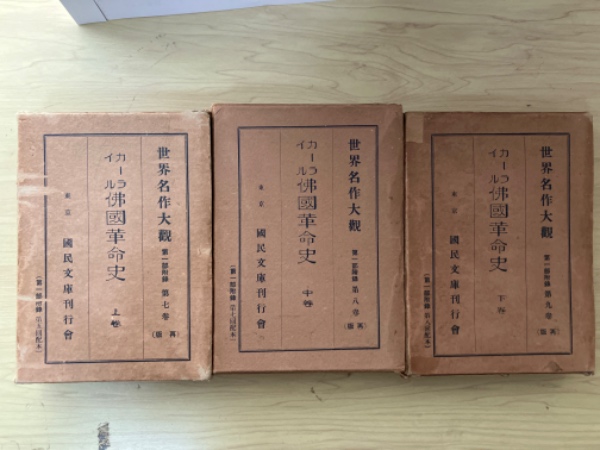 世界名作大觀 第一部附錄 第七卷 (英國)
カーライル 佛國革命史 上卷
東京 國民文庫刊行會
世界名作大觀 第一部附錄 第八卷 (英國)
カーライル 佛國革命史 中卷
東京 國民文庫刊行會
世界名作大觀 第一部附錄 第九卷 (英國)
カーライル 佛國革命史 下卷
東京 國民文庫刊行會